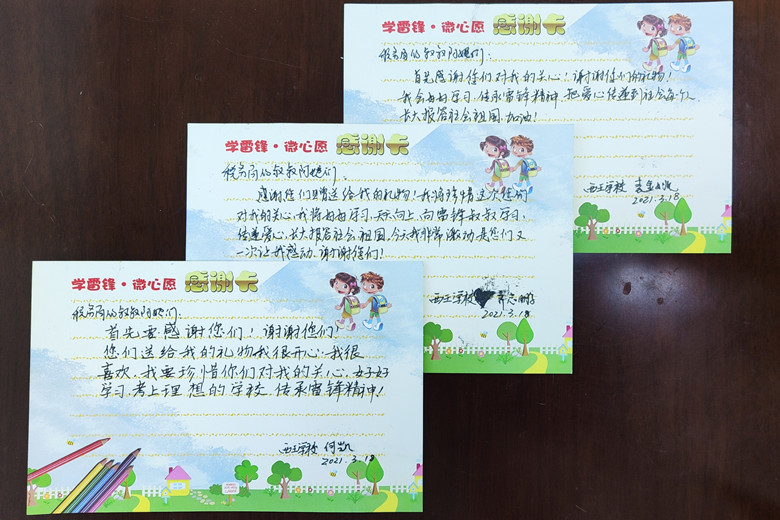 学雷锋·微心愿 感谢卡
税务局的叔叔阿姨们:
首先感谢您们对我的关心!谢谢您们的礼物!
我会好好学习,传承雷锋精神,把爱心传递到社会每个人,
长大报答社会祖国,加油!
西王学校
2021.3.18
学雷锋·微心愿 感谢卡
税务局的叔叔阿姨们:
感谢您们赠送给我的礼物!我将珍惜这次您们
对我的关心,我将好好学习,天天向上,向雷锋叔叔学习,
传递爱心,长大报答社会祖国。今天我非常激动,是您们又
一次让我感动,谢谢您们!
西王学校
2021.3.18
学雷锋·微心愿 感谢卡
税务局的叔叔阿姨们:
首先要感谢您们!谢谢您们!
您们送给我的礼物我很开心,我很
喜欢,我要珍惜你们对我的关心,好好
学习,考上理想的学校,传承雷锋精神!
西王学校 何凯
2021.3.18